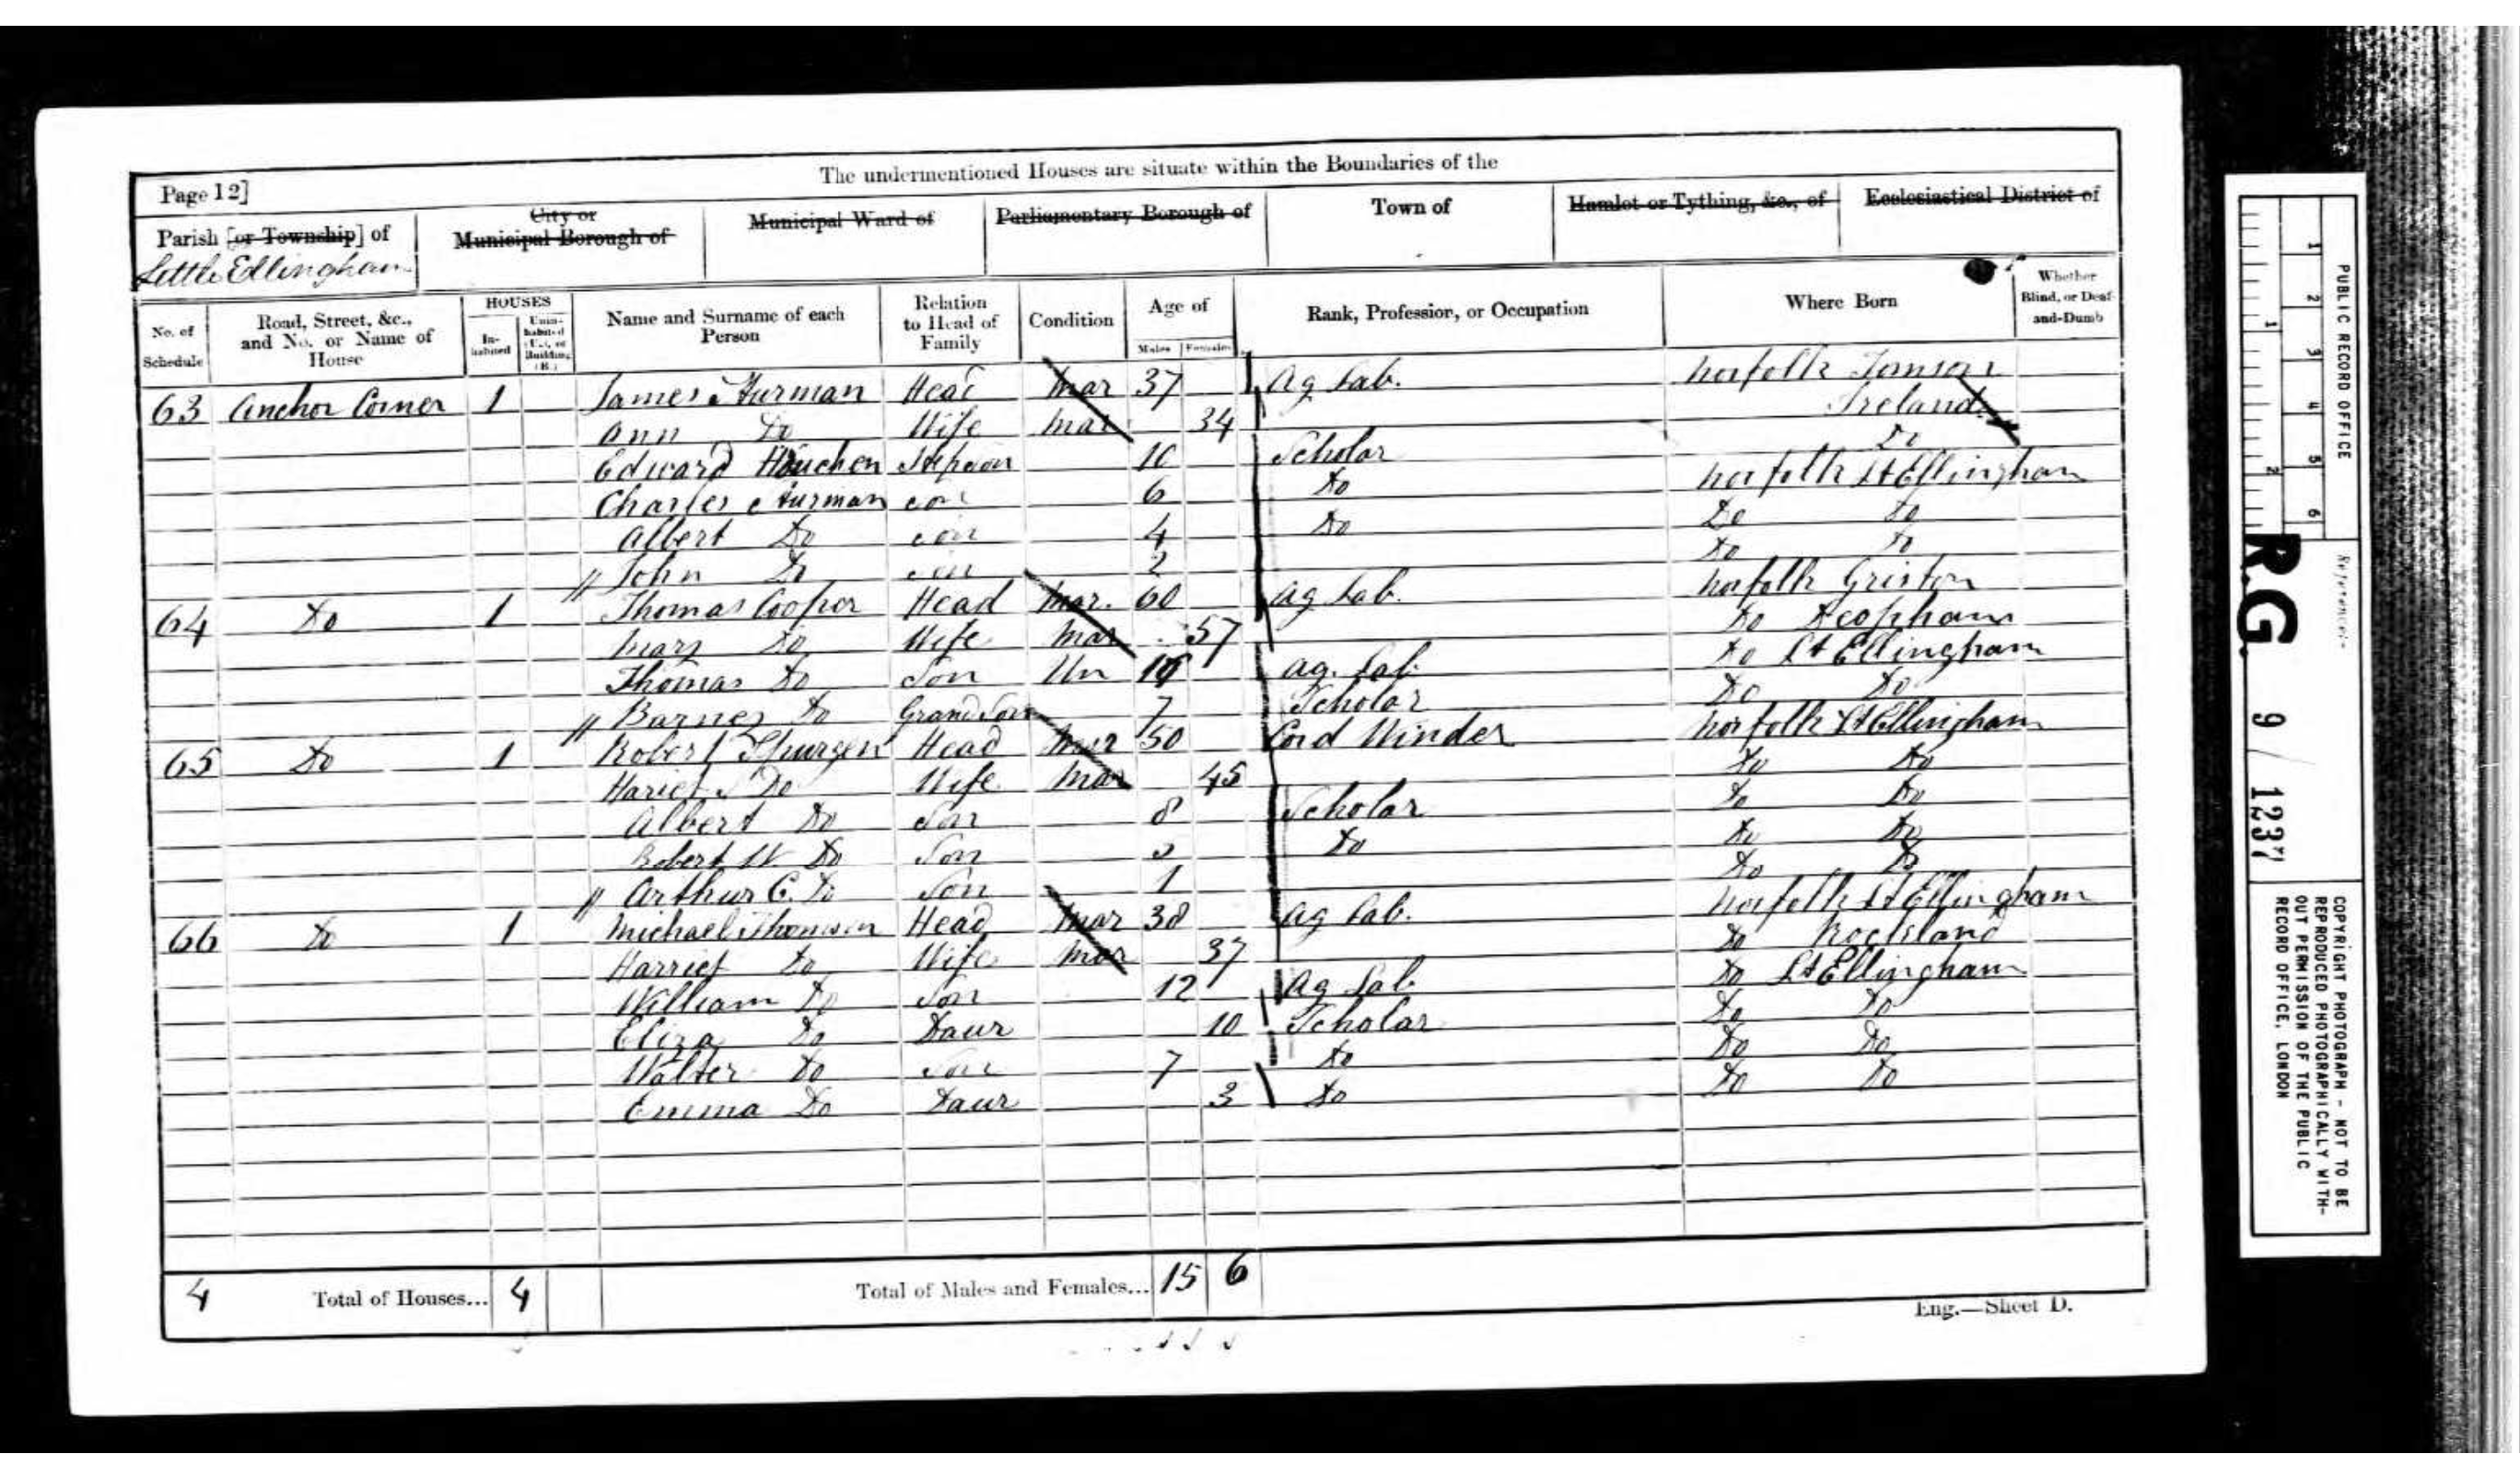 The undermentioned Houses are situate within the Boundaries of the
Page 12]
Parish [or Township] of
Little Ellingham
City or Municipal Borough of
Municipal Ward of
Parliamentary Borough of
Town of
Hamlet or Tything, &c., of
Ecclesiastical District of
No. of Schedule
Road, Street, &c., and No. or Name of House
HOUSES
In-habited
Unin-habited (U.), or Building (B.)
Name and Surname of each Person
Relation to Head of Family
Condition
Age of
Males
Females
Rank, Profession, or Occupation
Where Born
Whether Blind, or Deaf-and-Dumb
63 Anchor Corner 1 James Head Mar 37 Ag Lab. Norfolk
Ann Do Wife Mar 34 Ireland
Edward Houchen Stepson 10 Scholar Do
Charles Son 6 Do Norfolk Lt Ellingham
Albert Do Son 4 Do Do Do
John Do Son 2 Do Do
64 Do 1 Thomas Cooper Head Mar. 60 Ag Lab. Norfolk Griston
Mary Do Wife Mar 57 Do Deopham
Thomas Do Son Un Ag. Lab Do Lt Ellingham
Barnes Do Grand Son 7 Scholar Do Do
65 Do 1 Robert Spurgen Head Mar 50 Cord Winder Norfolk Lt Ellingham
Hariet S Do Wife Mar 45 Do Do
Albert Do Son 8 Scholar Do Do
Robert W Do Son Do Do Do
Arthur C. Do Son 1 Do Do
66 Do 1 Michael Thomson Head Mar 38 Ag Lab. Norfolk Lt Ellingham
Harriet Do Wife Mar 37 Do Rockland
William Do Son 12 Ag Lab Do Lt Ellingham
Eliza Do Daur 10 Scholar Do Do
Walter Do Son 7 Do Do Do
Emma Do Daur 3 Do Do Do
4 Total of Houses... 4 Total of Males and Females... 15 6
Eng.—Sheet D.
PUBLIC RECORD OFFICE
1 2 3 4 5 6
1 2
Reference:-
R.G. 9 / 1237
COPYRIGHT PHOTOGRAPH - NOT TO BE
REPRODUCED PHOTOGRAPHICALLY WITH-
OUT PERMISSION OF THE PUBLIC
RECORD OFFICE, LONDON